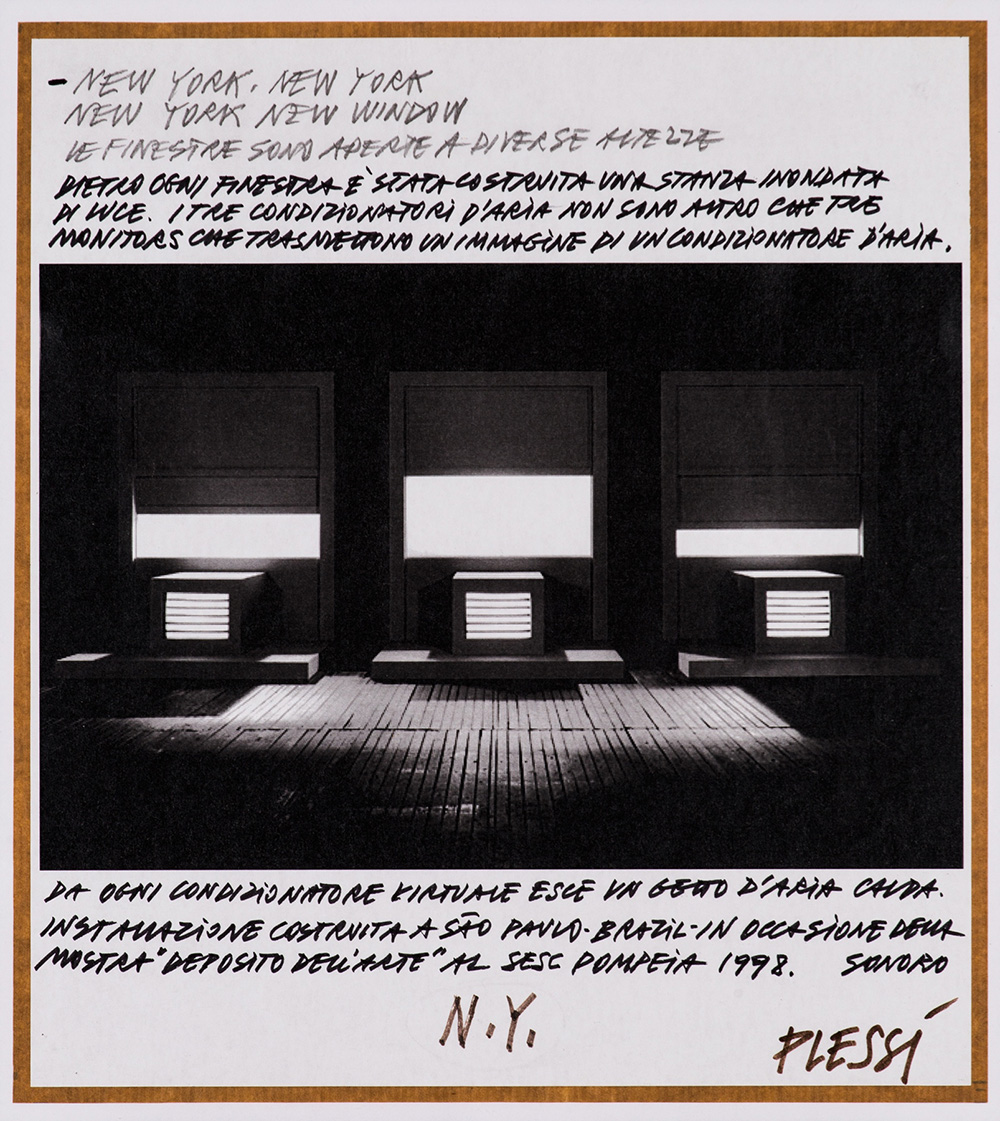 - NEW YORK. NEW YORK
NEW YORK NEW WINDOW
LE FINESTRE SONO APERTE A DIVERSE ALTEZZE
DIETRO OGNI FINESTRA È STATA COSTRUITA UNA STANZA INONDATA
DI LUCE. I TRE CONDIZIONATORI D'ARIA NON SONO ALTRO CHE TRE
MONITORS CHE TRASMETTONO UN IMMAGINE DI UN CONDIZIONATORE D'ARIA.
DA OGNI CONDIZIONATORE VIRTUALE ESCE UN GETTO D'ARIA CALDA.
INSTALLAZIONE COSTRUITA A SÃO PAULO-BRAZIL-IN OCCASIONE DELLA
MOSTRA "DEPOSITO DELL'ARTE" AL SESC POMPEIA 1998. SONORO
N.Y.
PLESSI